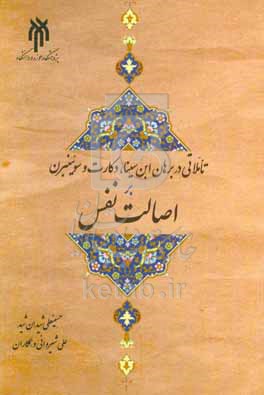 پژوهشگاه حوزه و دانشگاه
تأملاتی در برهان ابن سینا، دکارت و سوئینبرن
بر
اصالت نفس
حسینعلی شیدان شید
علی شیروانی و همکاران
ketab.ir